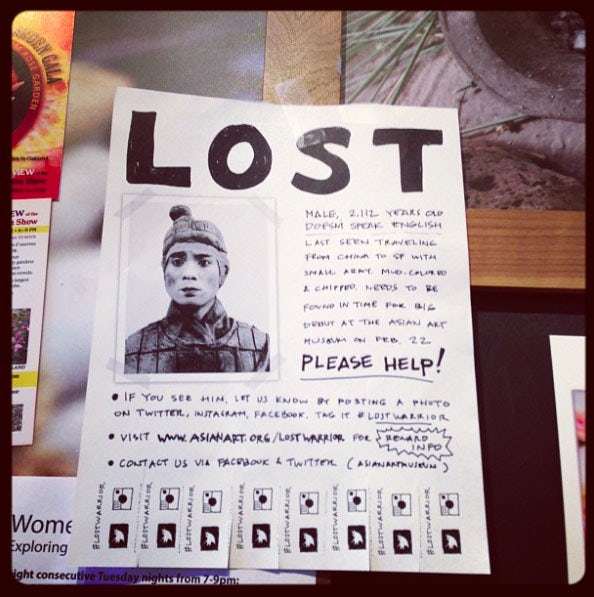 LOST
MALE, 2,112 YEARS OLD
DOESN'T SPEAK ENGLISH
LAST SEEN TRAVELING
FROM CHINA TO SF WITH
SMALL ARMY. MUD-COLORED
& CHIPPED. NEEDS TO BE
FOUND IN TIME FOR BIG
DEBUT AT THE ASIAN ART
MUSEUM ON FEB. 22
PLEASE HELP!
• IF YOU SEE HIM, LET US KNOW BY POSTING A PHOTO
ON TWITTER, INSTAGRAM, FACEBOOK. TAG IT #LOSTWARRIOR
• VISIT WWW.ASIANART.ORG/LOSTWARRIOR FOR REWARD INFO
• CONTACT US VIA FACEBOOK & TWITTER (ASIANARTMUSEUM)
#LOSTWARRIOR
#LOSTWARRIOR
#LOSTWARRIOR
#LOSTWARRIOR
#LOSTWARRIOR
#LOSTWARRIOR
#LOSTWARRIOR
#LOSTWARRIOR
GALA
GARDEN
in Oakland
VIEW of the
VIEW of the
Show
Wome
Exploring
ight consecutive Tuesday nights from 7-9pm: